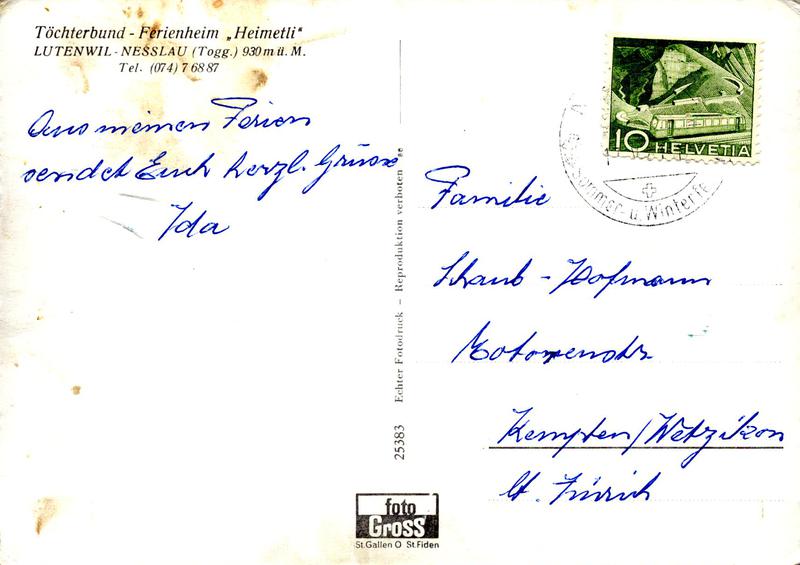 Töchterbund - Ferienheim „Heimetli“
LUTENWIL - NESSLAU (Togg.) 930 m ü. M.
Tel. (074) 7 68 87
Aus meinen Ferien
sendet Euch herzl. Grüsse
Ida
Echter Fotodruck – Reproduktion verboten
25383
foto
Gross
St. Gallen O St. Fiden
10 HELVETIA
Sommer- u. Winterfe
Familie
Schaub - Hofmann
Kempten/Wetzikon
Kt. Zürich